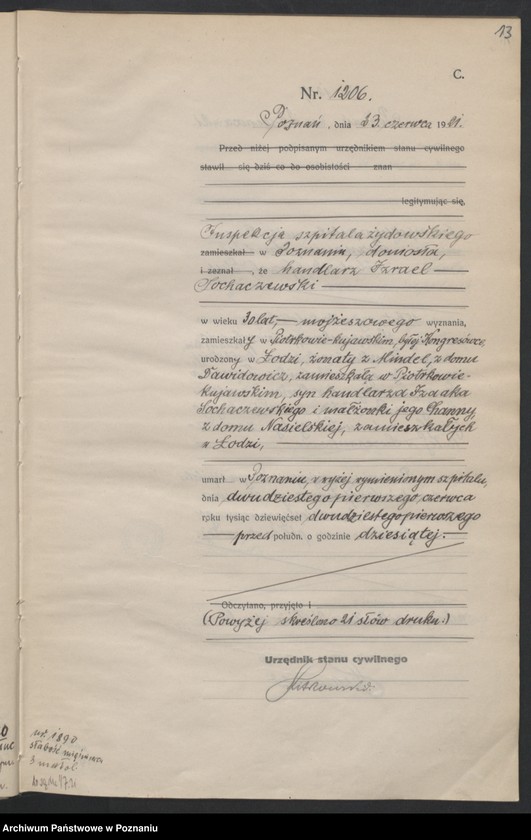 13
C.
Nr. 1206.
Poznań, dnia 23 czerwca 1921.
Przed niżej podpisanym urzędnikiem stanu cywilnego
stawił się dziś co do osobistości znan
legitymując się,
Inspekcja szpitala żydowskiego
zamieszkał w Poznaniu, doniosła,
i zeznał, że handlarz Izrael
Sochaczewski
w wieku 30 lat, mojżeszowego wyznania,
zamieszkały w Piotrkowie-kujawskim, byłej Kongresówce,
urodzony w Łodzi, żonaty z Mindel, z domu
Dawidowicz, zamieszkałą w Piotrkowie-
kujawskim, syn handlarza Izaaka
Sochaczewskiego i małżonki jego Channy,
z domu Nasielskiej, zamieszkałych
w Łodzi,
umarł w Poznaniu, w wyżej wymienionym szpitalu,
dnia dwudziestego pierwszego, czerwca
roku tysiąc dziewięćset dwudziestego pierwszego
przed południ. o godzinie dziesiątej.
Odczytano, przyjęto i
(Powyżej skreślono 21 słów druku.)
Urzędnik stanu cywilnego
ur. 1890
słabość
Archiwum Państwowe w Poznaniu